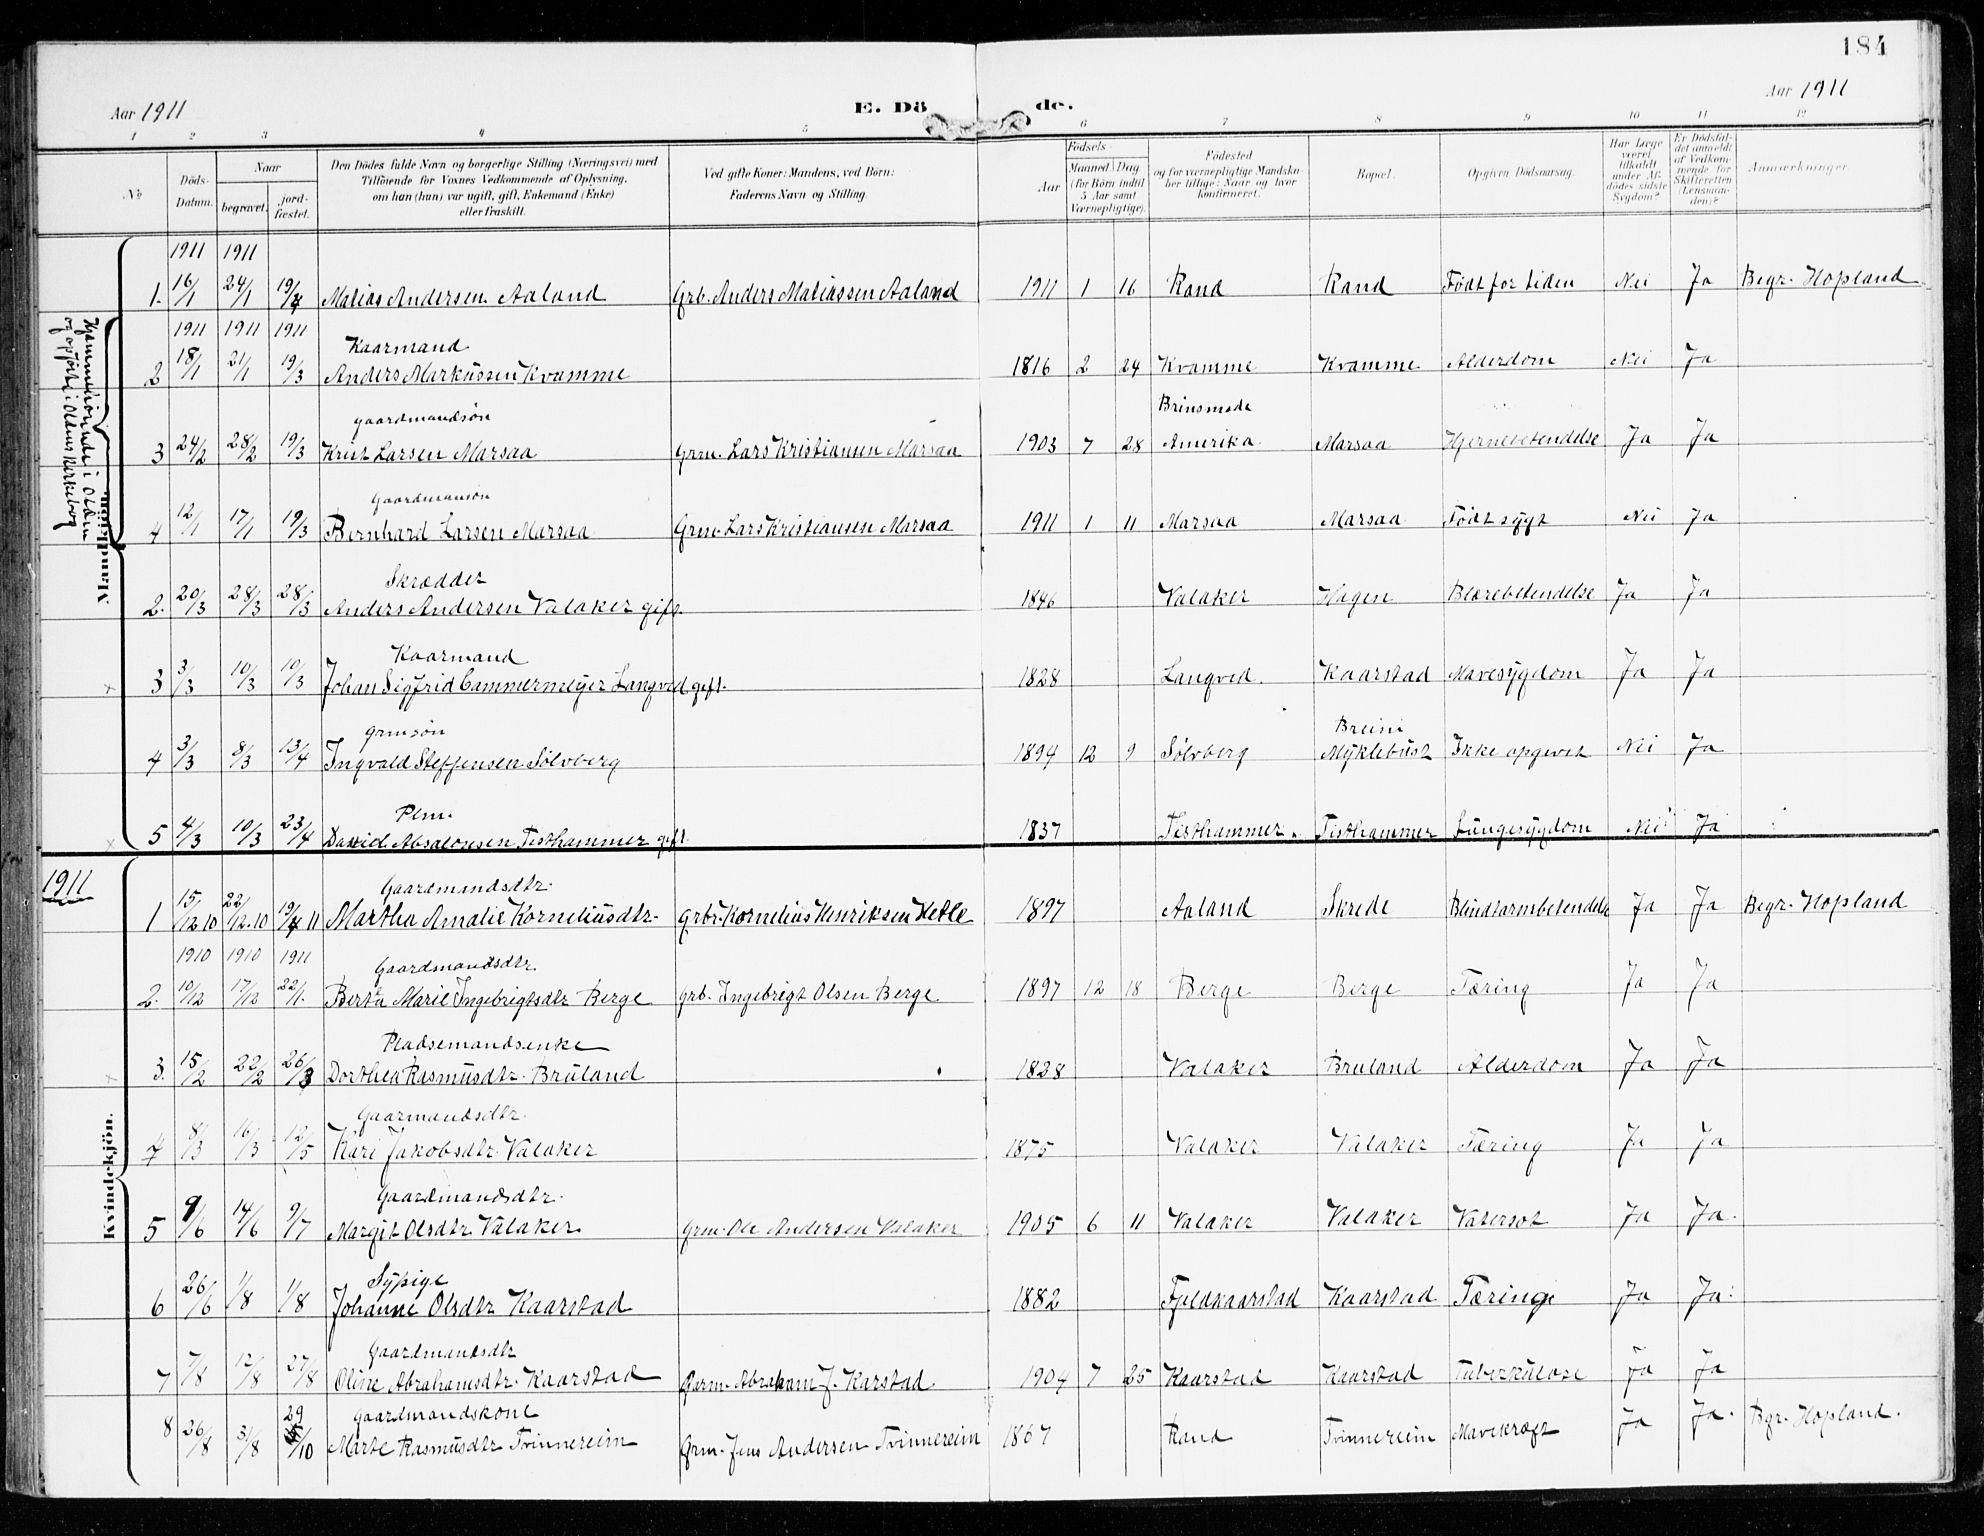 184
Aar 1911
E. Dö de.
Aar 1911
1 2 3 4 5 6 7 8 9 10 11 12
No
Döds-Datum.
Naar
begravet.
jord-fæstet.
Den Dödes fulde Navn og borgerlige Stilling (Næringsvei) med
Tilföiende for Voxnes Vedkommende af Oplysning,
om han (hun) var ugift, gift, Enkemand (Enke)
eller fraskilt.
Ved gifte Koner: Mandens, ved Börn:
Faderens Navn og Stilling.
Födsels-
Aar
Maaned Dag
(for Börn indtil
5 Aar samt
Værnepligtige).
Födested
og for værnepligtige Mandskaber tillige: Naar og hvor
konfirmeret.
Bopæl.
Opgiven Dödsaarsag.
Har Læge
været
tilkaldt
under Afdödes sidste
Sygdom?
Er Dödsfaldet anmeldt
af Vedkommende for
Skifteretten
(Lensmanden)?
Anmærkninger.
Mandkjön.
Hjemmehørende i Olden
og opført i Oldens kirkebog
1911 1911
1. 16/1 24/1 19/4 Matias Andersen Aaland Grb. Anders Matiassen Aaland 1911 1 16 Rand Rand Født for tiden Nei Ja Begr. Hopland
1911 1911 1911
Kaarmand
2 18/1 21/1 19/3 Anders Markussen Kvamme 1816 2 24 Kvamme Kvamme Alderdom Nei Ja
gaardmandsøn Brinsmade
3 24/2 28/2 19/3 Krist Larsen Marsaa Grm. Lars Kristiansen Marsaa 1903 7 28 Amerika Marsaa Hjernebetendelse Ja Ja
Gaardmansøn
4 12/1 17/1 19/3 Bernhard Larsen Marsaa Grm. Lars Kristiansen Marsaa 1911 1 11 Marsaa Marsaa Født sygt Nei Ja
Skrædder
2. 20/3 28/3 28/3 Anders Andersen Valaker gift. 1846 Valaker Hagen Blærebetendelse Ja Ja
Kaarmand
3 3/3 10/3 10/3 Johan Sigfrid Cammermeyer Langved gift. 1828 Langved. Kaarstad Mavesygdom Ja Ja
Grmsøn Breim
4 3/3 8/3 13/4 Ingvald Steffensen Sølvberg 1894 12 9 Sølvberg Myklebust Ikke opgivet Nei Ja
Plm.
5 4/3 10/3 23/4 David Absalonsen Tisthammer gift. 1837 Tisthammer. Tisthammer Lungesygdom Nei Ja
1911
Kvindekjön.
Gaardmandsdtr.
1 15/12 10 22/12.10 19/4 11 Martha Amalie Korneliusdtr. Grbr. Kornelius Henriksen Hetle 1897 Aaland Skrede Blindtarmbetendelse Ja Ja Begr. Hopland
1910 1910 1911
Gaardmandsdtr.
2. 10/12 17/12 22/1. Berta Marie Ingebrigtsdtr Berge Grb. Ingebrigt Olsen Berge 1897 12 18 Berge Berge Tæring Ja Ja
Pladsemandsenke
3. 15/2 22/2 26/3 Dorthea Rasmusdtr. Bruland 1828 Valaker Bruland Alderdom Ja Ja
Gaarmandsdtr.
4 8/3 16/3 12/5 Kari Jakobsdtr. Valaker 1875 Valaker Valaker Tæring Ja Ja
Gaardmandsdtr.
5 9/6 14/6 9/7 Margit Olsdtr Valaker Grm. Ole Andersen Valaker 1905 6 11 Valaker Valaker Vatersot Ja Ja.
Sypige
6 26/6 1/8 1/8 Johanne Olsdtr Kaarstad 1882 Fjeldkaarstad Kaarstad Tæring Ja Ja
Gaardmandsdtr
7 7/8 12/8 27/8 Oline Abrahamsdtr. Kaarstad Garm. Abraham J. Karstad 1904 7 25 Kaarstad Kaarstad tuberkulose Ja Ja
Gaardmandskone
8 26/8 3/8 29/10 Marte Rasmusdtr Tvinnereim Grm. Jens Andersen Tvinnereim 1867 Rand Tvinnereim Mavekræft Ja Ja. Bgr. Hopland.